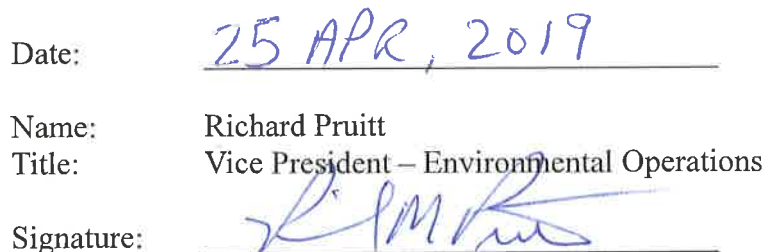 Date: 25 APR, 2019
Name: Richard Pruitt
Title: Vice President – Environmental Operations
Signature: